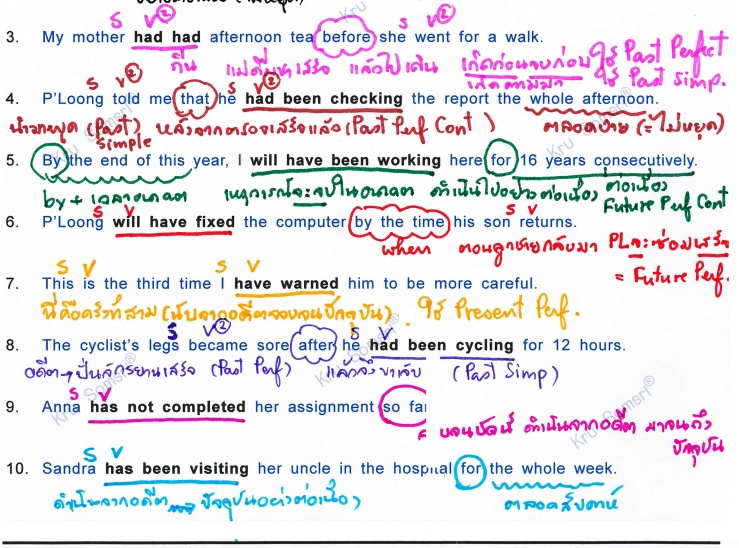 S V② S V②
3. My mother had had afternoon tea before she went for a walk.
กิน แม่ดื่มชาเสร็จ แล้วไปเดิน เกิดก่อนจบก่อน ใช้ Past Perfect
เกิดตามมา ใช้ Past Simp.
S V② V②
4. P'Loong told me that he had been checking the report the whole afternoon.
(Past Simple) หลังจากตรวจเสร็จแล้ว (Past Perf Cont) ตลอดบ่าย (= ไม่หยุด)
5. By the end of this year, I will have been working here for 16 years consecutively.
by + เวลาอนาคต เหตุการณ์จะจบในอนาคต ดำเนินไปอย่างต่อเนื่อง ต่อเนื่อง
Future Perf Cont
6. P'Loong will have fixed the computer by the time his son returns.
S V S V
when ตอนลูกชายกลับมา PL จะซ่อมเสร็จ
= Future Perf.
S V S V
7. This is the third time I have warned him to be more careful.
นี่คือครั้งที่สาม (นับจากอดีตจนจบปัจจุบัน) ใช้ Present Perf.
S V② S V
8. The cyclist's legs became sore after he had been cycling for 12 hours.
อดีต → ปั่นจักรยานเสร็จ (Past Perf) แล้วจึงขาเจ็บ (Past Simp)
S V
9. Anna has not completed her assignment so far
จนปัจจุบัน ดำเนินจากอดีต มาจนถึง
ปัจจุบัน
S V
10. Sandra has been visiting her uncle in the hospital for the whole week.
ดำเนินจากอดีต ปัจจุบันอย่างต่อเนื่อง ตลอดสัปดาห์
Kru Somsri®
Kru Somsri®
Kru Somsri®